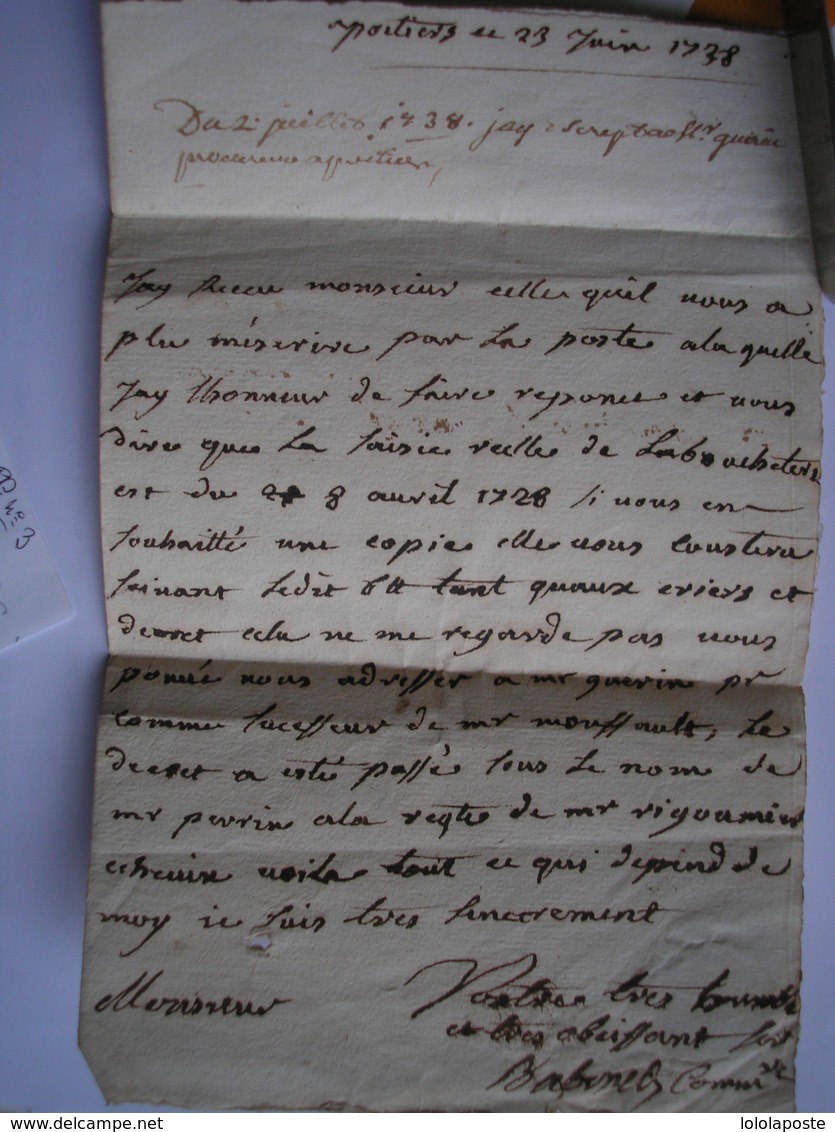 poitiers ce 23 Juin 1738
Du 2 juillet 1738. jay escript a Sr guerin
procureur a poitiers
Jay Receu monsieur celle quil vous a
plu m'escrire par La poste a la quelle
Jay lhonneur de faire reponce et vous
dire que La saisie reelle de Labouchetiere
est du 8 avril 1728 si vous en
souhaitté une copie elle vous coustera
suivant ledit 6tt tant quaux criers et
decret cela ne me regarde pas vous
pouvé vous adresser a mr guerin pr
comme sucesseur de mr mouffault, Le
decret a esté passé sous Le nom de
mr perrin a la reqte de mr
voila tout ce qui depend de
moy ie suis tres sincerement
Monsieur
Vostre tres humble
et tres obeissant sert
Babinet Commre
PP ne 3
lololaposte